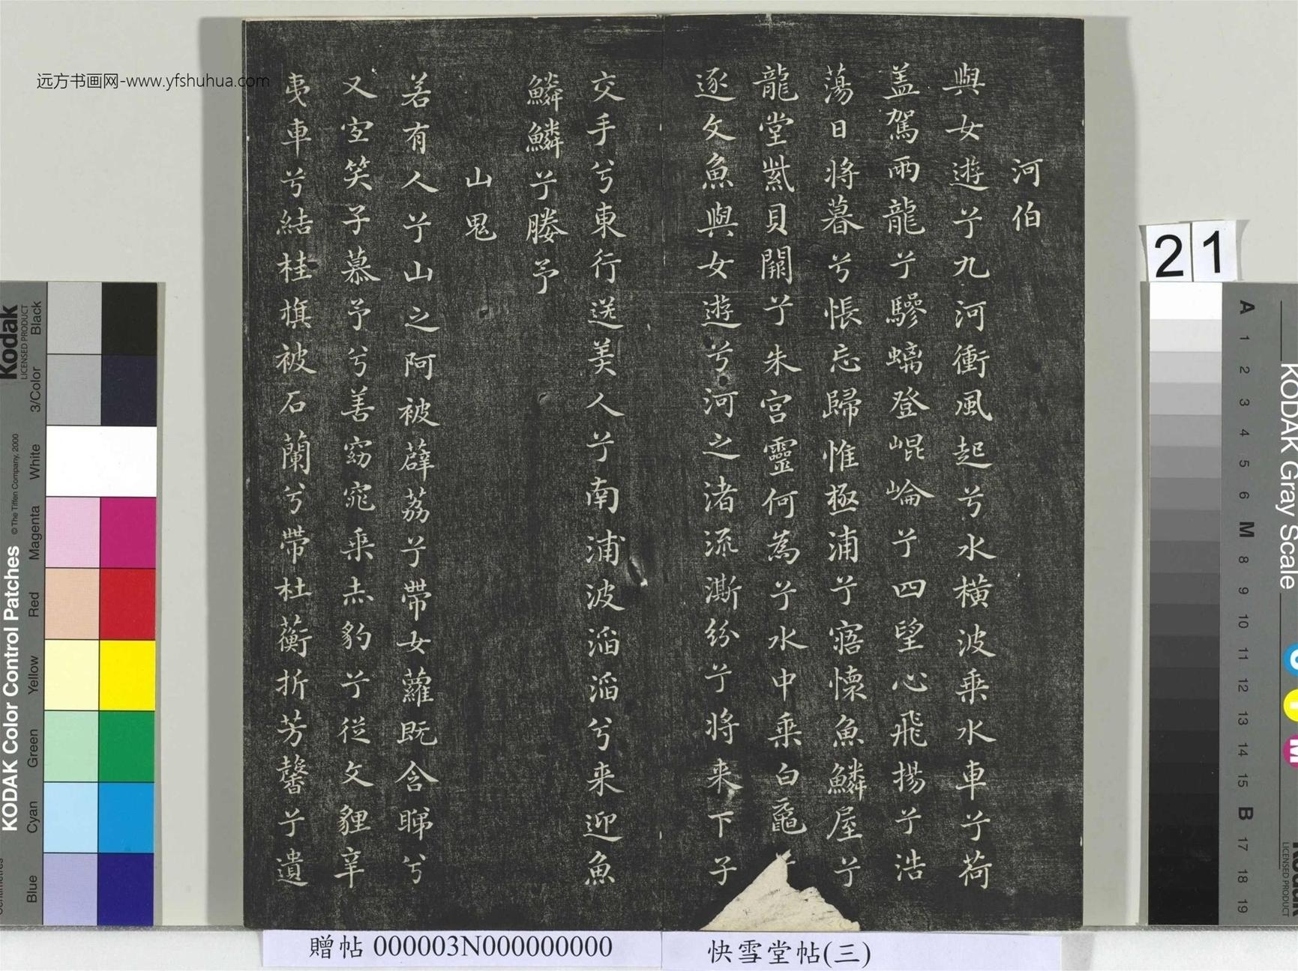 河伯
與女遊兮九河衝風起兮水橫波乘水車兮荷
盖駕兩龍兮驂螭登崐崘兮四望心飛揚兮浩
蕩日将暮兮悵忘歸惟極浦兮寤懷魚鱗屋兮
龍堂紫貝闕兮朱宮靈何為兮水中乘白黿
逐文魚與女遊兮河之渚流澌紛兮将来下子
交手兮東行送美人兮南浦波滔滔兮来迎魚
鱗鱗兮媵予
山鬼
若有人兮山之阿被薜荔兮帶女蘿既含睇兮
又宜笑子慕予兮善窈窕乘赤豹兮從文貍辛
夷車兮結桂旗被石蘭兮帶杜蘅折芳馨兮遺
远方书画网-www.yfshuhua.com
贈帖 000003N000000000
快雪堂帖(三)
21
Kodak
LICENSED PRODUCT
KODAK Color Control Patches
© The Tiffen Company, 2000
Black
3/Color
White
Magenta
Red
Yellow
Green
Cyan
Blue
KODAK Gray Scale
A 1 2 3 4 5 6 M 8 9 10 11 12 13 14 15 B 17 18 19